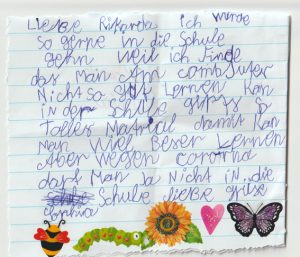 Liebe Rikarda ich würde
so gerne in die Schule
gehn weil ich finde
das Man Am combuter
Nicht so gut Lernen kan
in der Schule gibt's so
tolles Matrial damit kan
Man viel Beser Lernen
Aber wegen corona
darf Man Ja Nicht in die
Schule liebe grüse